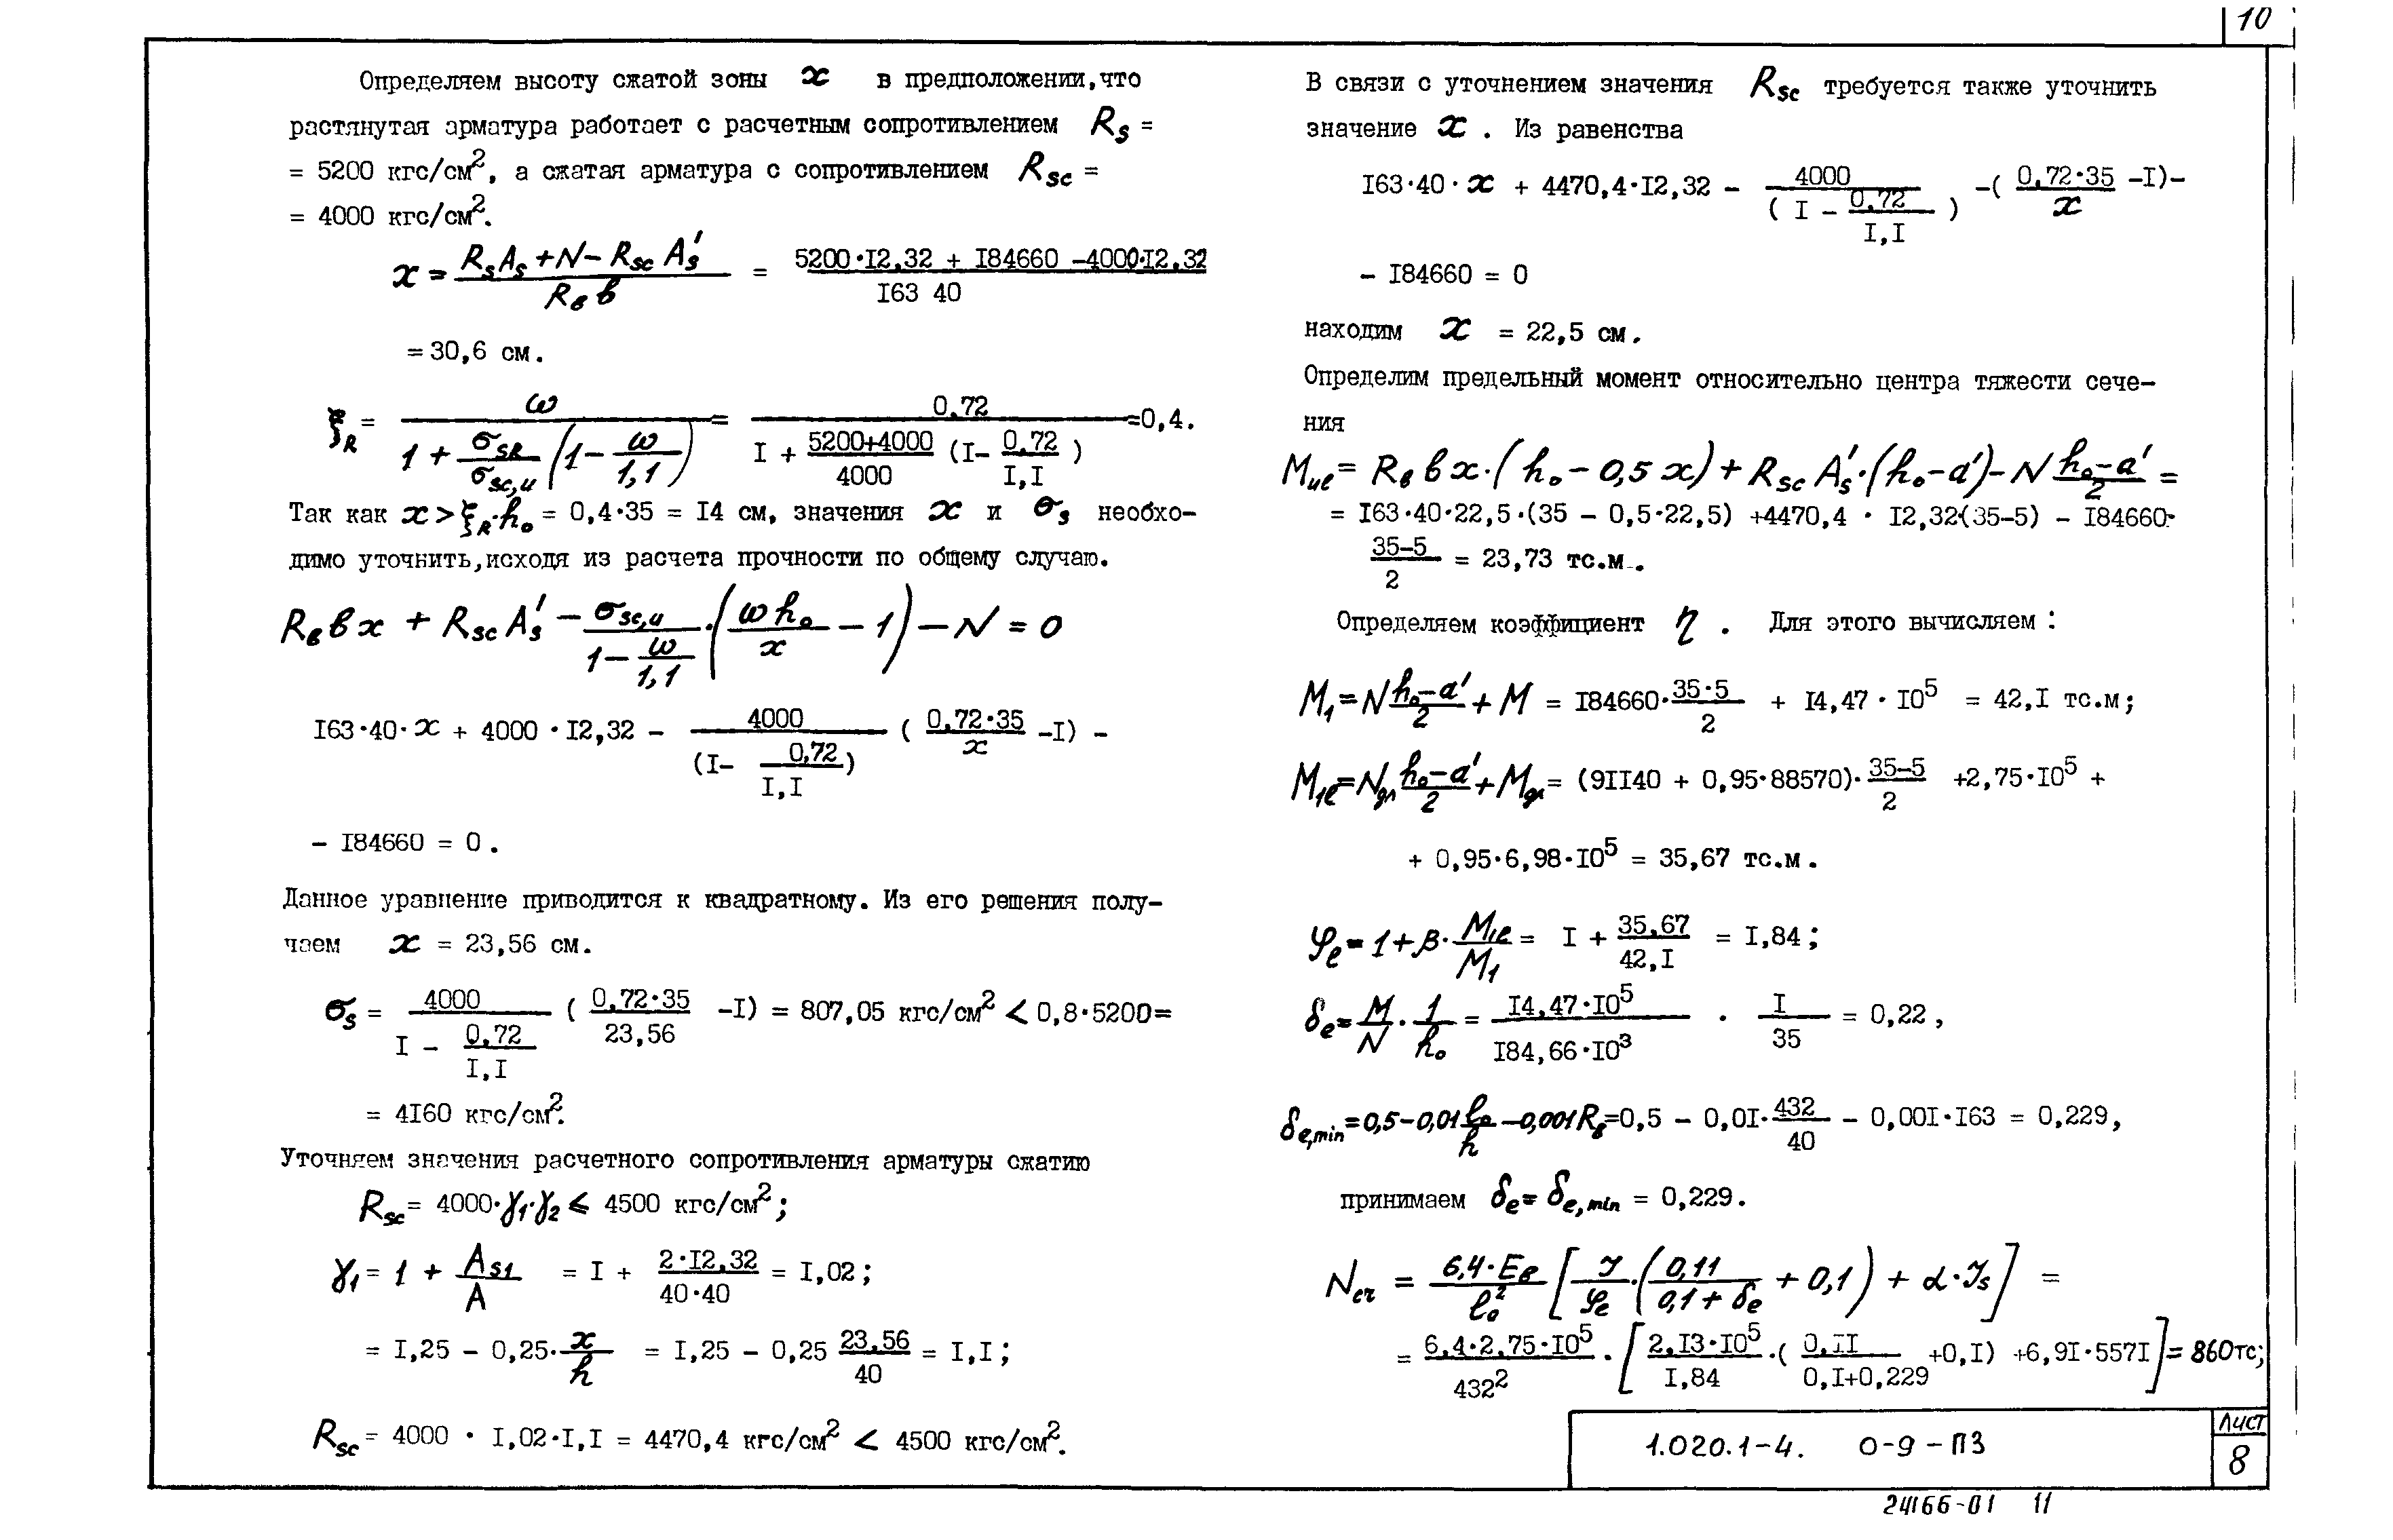 10
Определяем высоту сжатой зоны x в предположении, что
растянутая арматура работает с расчетным сопротивлением Rs =
= 5200 кгс/см², а сжатая арматура с сопротивлением Rsc =
= 4000 кгс/см².
x = (Rs As + N − Rsc A's) / (Rв в) = (5200·12,32 + 184660 − 4000·12,32) / (163 40)
= 30,6 см.
ξR = ω / (1 + σsR/σsc,u (1 − ω/1,1)) = 0,72 / (1 + (5200+4000)/4000 (1 − 0,72/1,1)) = 0,4.
Так как x > ξR·h₀ = 0,4·35 = 14 см, значения x и σs необхо-
димо уточнить, исходя из расчета прочности по общему случаю.
Rв в x + Rsc A's − σsc,u / (1 − ω/1,1) · (ω h₀ / x − 1) − N = 0
163·40·x + 4000·12,32 − 4000 / (1 − 0,72/1,1) (0,72·35 / x − 1) −
− 184660 = 0.
Данное уравнение приводится к квадратному. Из его решения полу-
чаем x = 23,56 см.
σs = 4000 / (1 − 0,72/1,1) (0,72·35 / 23,56 − 1) = 807,05 кгс/см² < 0,8·5200=
= 4160 кгс/см².
Уточняем значения расчетного сопротивления арматуры сжатию
Rsc = 4000·γ₁·γ₂ ≤ 4500 кгс/см²;
γ₁ = 1 + As1/A = 1 + 2·12,32 / 40·40 = 1,02;
= 1,25 − 0,25·x/h = 1,25 − 0,25 23,56/40 = 1,1;
Rsc = 4000 · 1,02·1,1 = 4470,4 кгс/см² < 4500 кгс/см².
В связи с уточнением значения Rsc требуется также уточнить
значение x. Из равенства
163·40·x + 4470,4·12,32 − 4000 / (1 − 0,72/1,1) −(0,72·35 / x −1)−
− 184660 = 0
находим x = 22,5 см.
Определим предельный момент относительно центра тяжести сече-
ния
Mие = Rв в x·(h₀ − 0,5 x) + Rsc A's·(h₀−a') − N (h₀−a')/2 =
= 163·40·22,5·(35 − 0,5·22,5) +4470,4 · 12,32·(35−5) − 184660·
(35−5)/2 = 23,73 тс.м.
Определяем коэффициент η. Для этого вычисляем:
M₁ = N (h₀−a')/2 + M = 184660·35·5/2 + 14,47·10⁵ = 42,1 тс.м;
M₁ℓ = Nдл (h₀−a')/2 + Mдл = (91140 + 0,95·88570)·(35−5)/2 +2,75·10⁵ +
+ 0,95·6,98·10⁵ = 35,67 тс.м.
φℓ = 1 + β·M₁ℓ/M₁ = 1 + 35,67/42,1 = 1,84;
δe = M/N · 1/h₀ = 14,47·10⁵ / 184,66·10³ · 1/35 = 0,22,
δe,min = 0,5−0,01 ℓ₀/h −0,001 Rв = 0,5 − 0,01·432/40 − 0,001·163 = 0,229,
принимаем δe = δe,min = 0,229.
Ncr = 6,4·Eв / ℓ₀² [J/φℓ·(0,11 / (0,1 + δe) + 0,1) + α·Js] =
= 6,4·2,75·10⁵ / 432² · [2,13·10⁵ / 1,84 ·(0,11 / (0,1+0,229) +0,1) +6,91·5571] = 860тс;
1.020.1-4. 0-9-ПЗ
Лист
8
24166-01 11